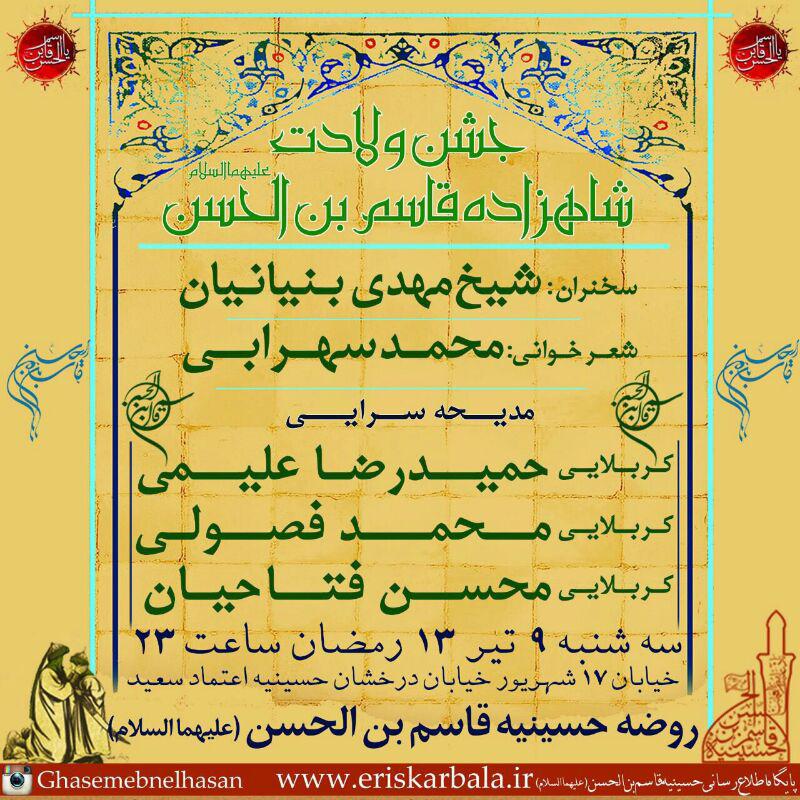 جشن ولادت
علیهما السلام
شاهزاده قاسم بن الحسن
سخنران: شیخ مهدی بنیانیان
شعر خوانی: محمد سهرابی
مدیحه سرایی
کربلایی حمیدرضا علیمی
کربلایی محمد فصولی
کربلایی محسن فتاحیان
سه شنبه ۹ تیر ۱۳ رمضان ساعت ۲۳
خیابان ۱۷ شهریور خیابان درخشان حسینیه اعتماد سعید
روضه حسینیه قاسم بن الحسن (علیهما السلام)
پایگاه اطلاع رسانی حسینیه قاسم بن الحسن (علیهما السلام) www.eriskarbala.ir
Ghasemebnelhasan